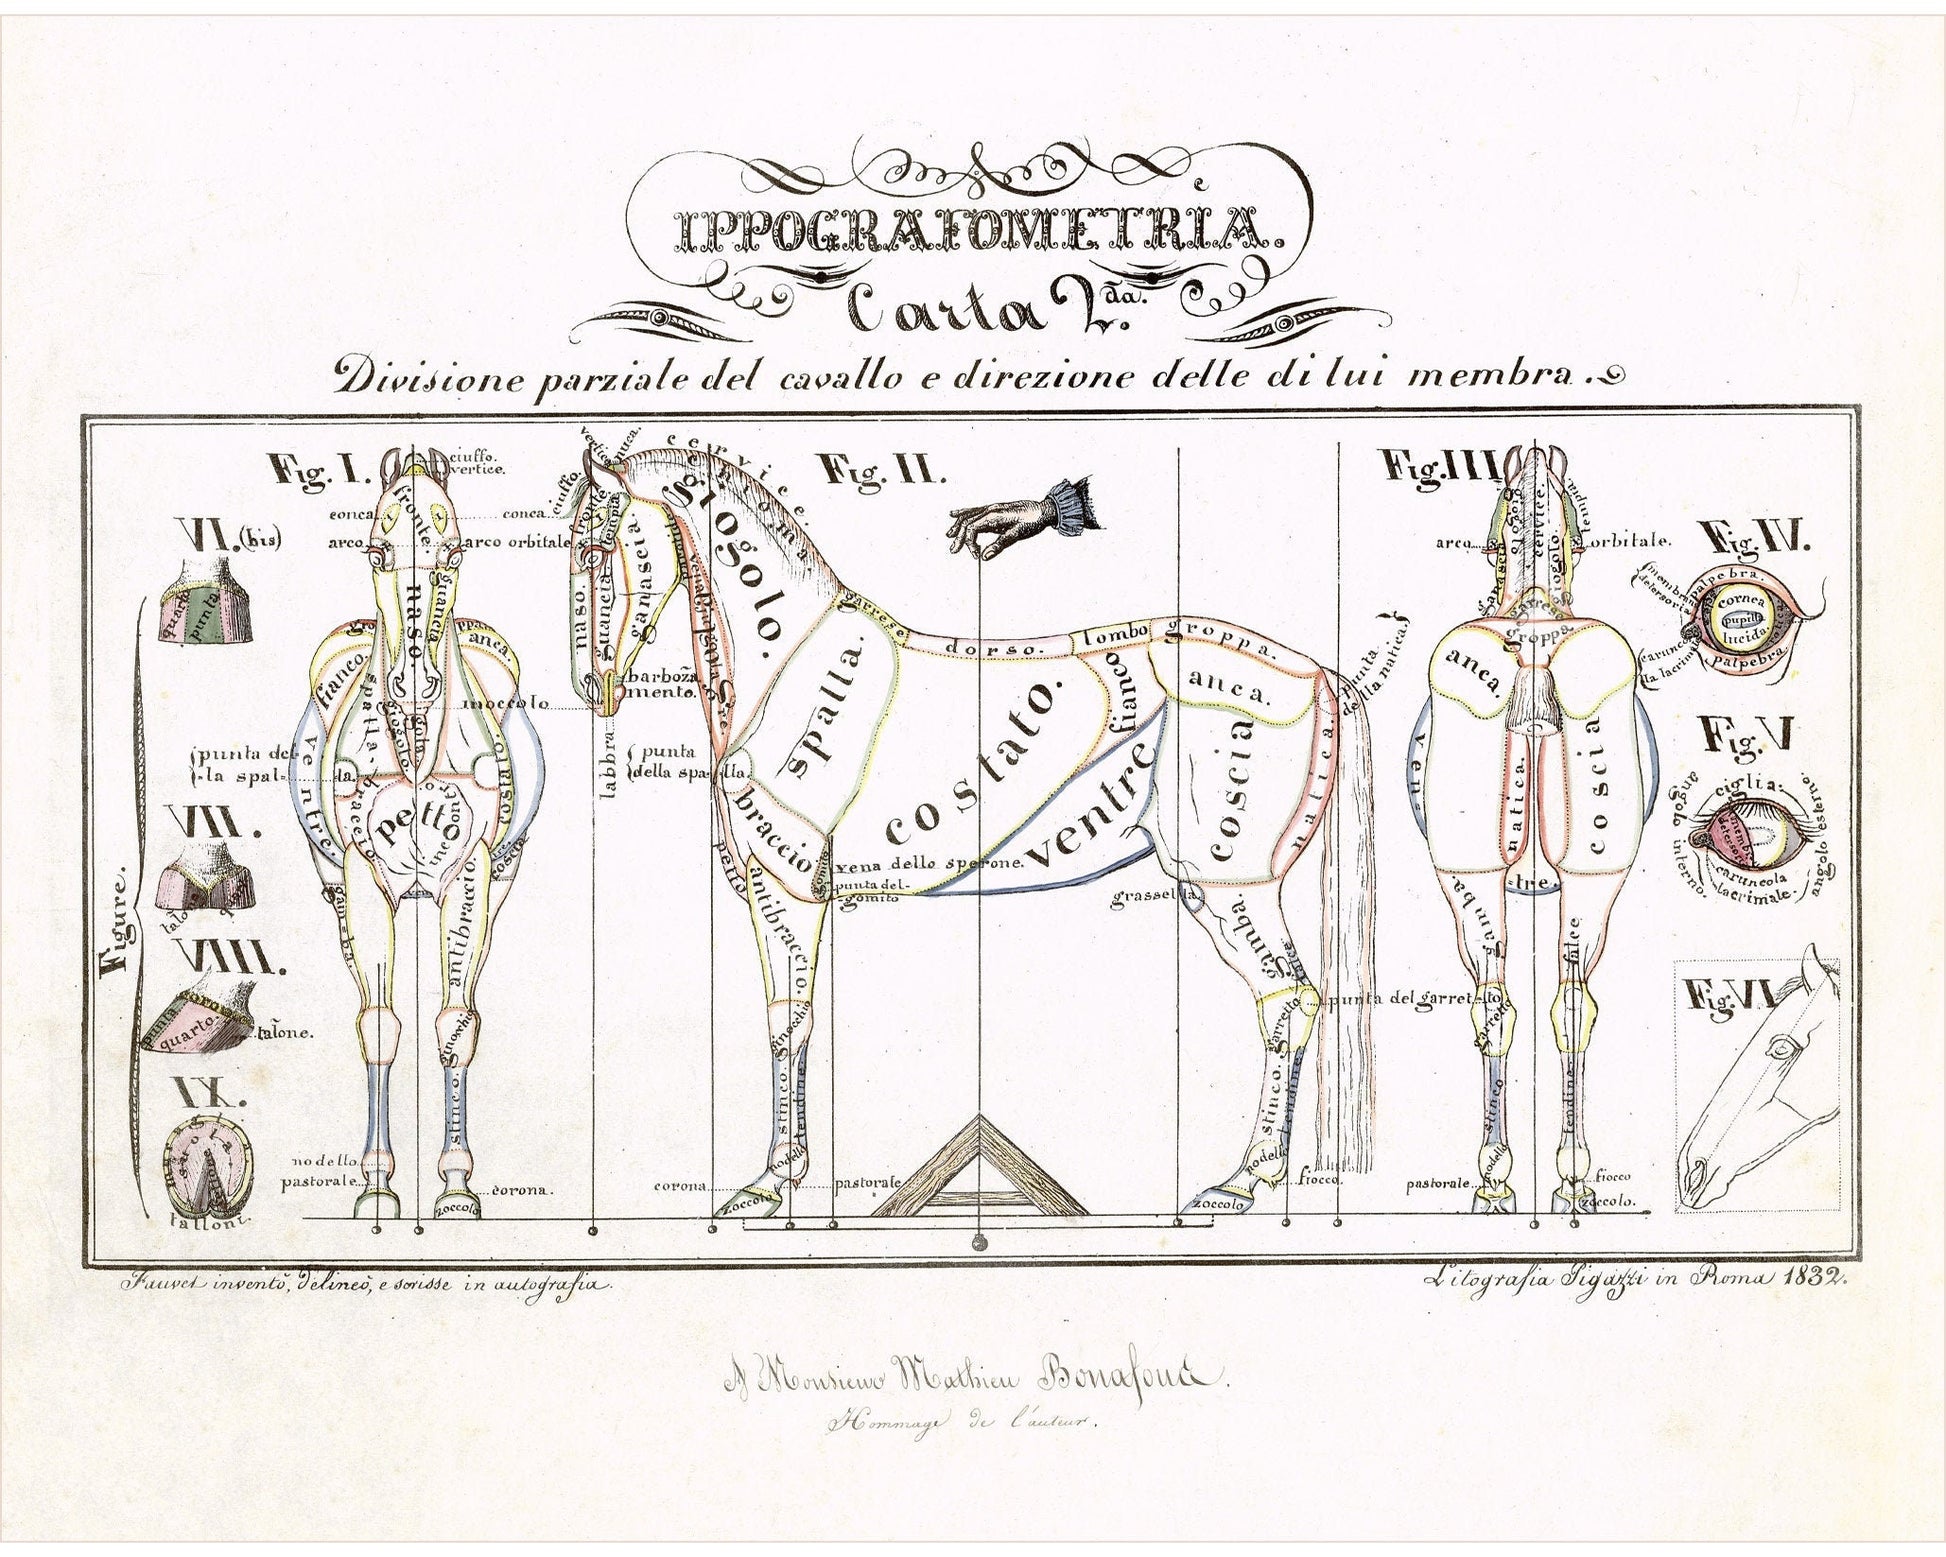 IPPOGRAFOMETRIA.
Carta 2.da
Divisione parziale del cavallo e direzione delle di lui membra.
Fig. I.
ciuffo.
vertice.
fronte.
conca
conca
arco
arco orbitale
naso.
guancia
gro
ppa
anca.
fianco.
spalla.
moccolo
ventre.
costato.
punta del-
-la spal-
la.
braccio
petto
antibraccio.
gam=ba.
coscia
ginocchio
stinco.
nodello
pastorale
corona.
zoccolo
Fig. II.
vertice
nuca.
cervice.
ciuffo.
fronte
tempia
naso.
guancia
ganascia.
giogolo.
barbozza
mento.
labbra.
punta
della spa-
lla.
garrese
dorso.
lombo
groppa.
spalla.
costato.
fianco
anca.
punta
della natica.
ventre
coscia
natica.
braccio
petto
gomito
vena dello sperone.
punta del-
-gomito
grassel
la.
antibraccio.
gamba.
falce
punta del garret-
to
garretto
ginocchio
stinco.
tendine.
stinco.
tendine.
nodello
nodello
corona
pastorale
fiocco.
zoccolo
zoccolo
Fig. III
cervice.
giogolo.
tempia
arco
orbitale.
ganascia
garrese
groppa.
anca.
ven=
natica.
coscia
=tre.
gamba.
falce
garretto
stinco
tendine.
nodello
pastorale
fiocco
zoccolo.
Fig. IV.
palpebra.
cornea
pupilla
lucida.
palpebra
caruncu
la lacrima
Fig. V
ciglia.
angolo interno.
angolo esterno.
caruncola
lacrimale.
Fig. VI
Figure.
VI. (bis)
quarto
punta
VII.
VIII.
corona
punta.
quarto.
talone.
IX.
muraglia.
suola.
talloni.
Fauvet inventò, delineò, e scrisse in autografia.
Litografia Pigazzi in Roma 1832.
A Monsieur Mathieu Bonafous.
Hommage de l'auteur.